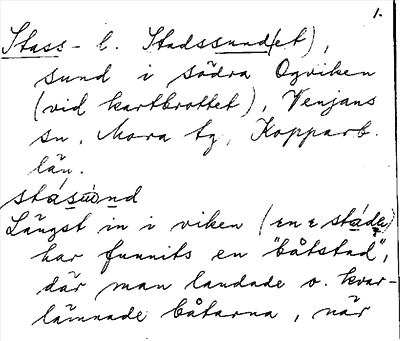 1.
Stass- l. Stadssund(et),
sund i södra Ogviken
(vid kartbrottet), Venjans
sn, Mora tg, Kopparb.
län.
stásùnd
Längst in i viken (en e stáde)
har funnits en "båtstad",
där man landade o. kvar-
lämnade båtarna, när